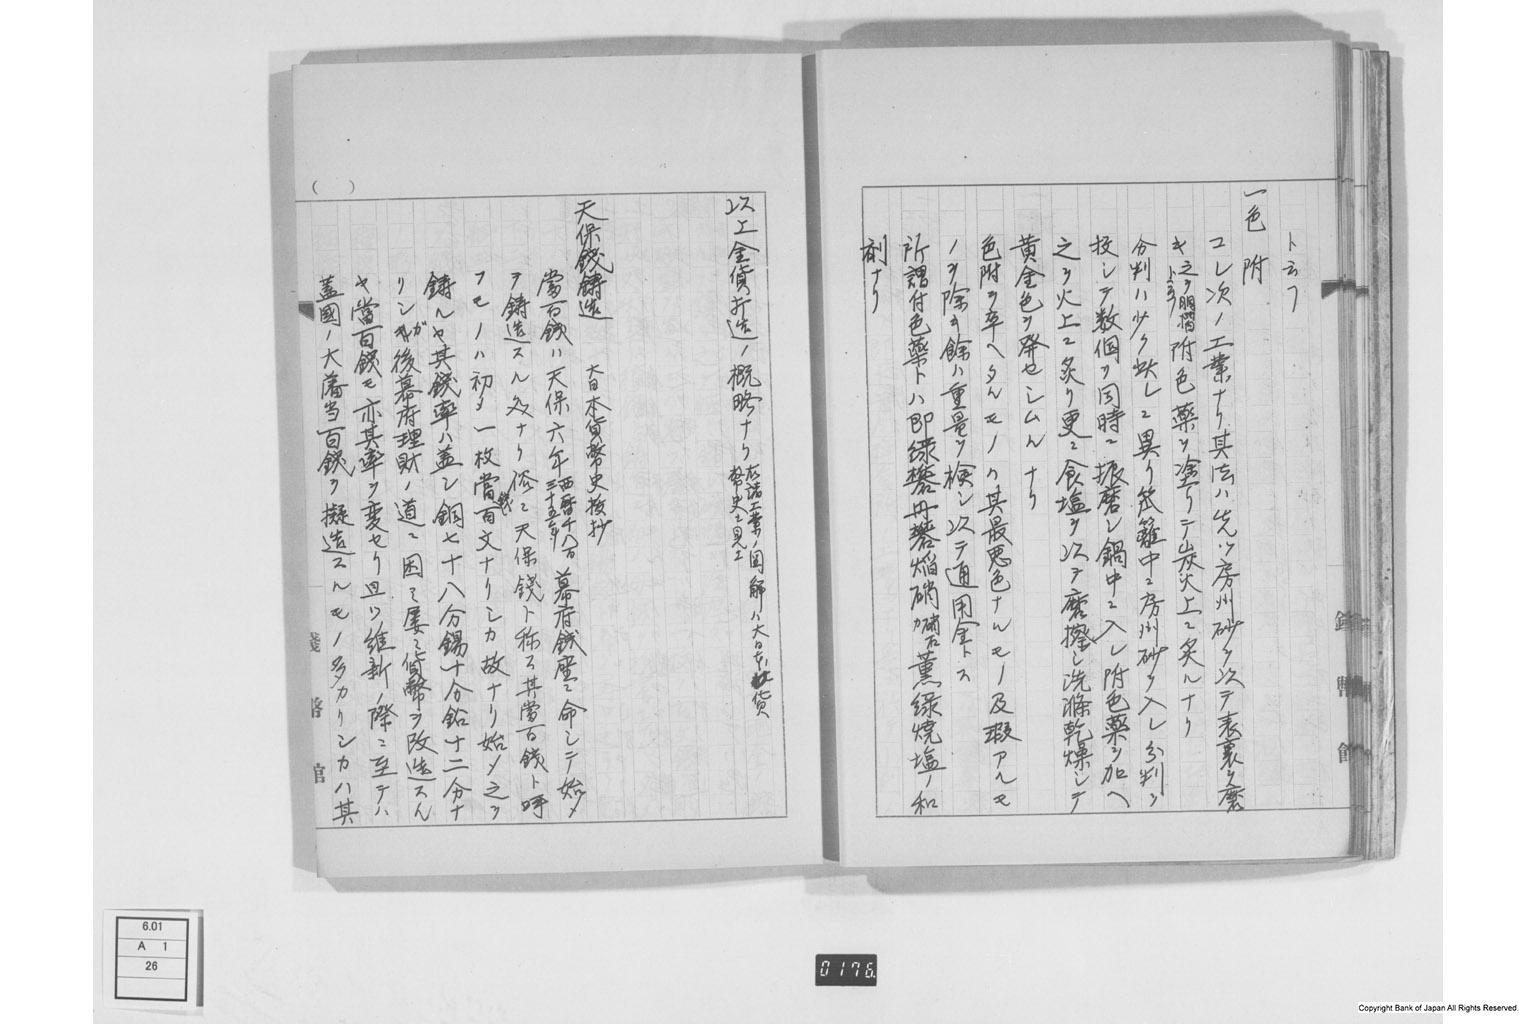 ト云フ
一色附
コレ次ノ工業ナリ其法ハ先ツ房州砂ヲ以テ表裏ヲ磨
キ之ヲ胴摺ト云フ附色薬ヲ塗リテ炭火上ニ炙ルナリ
分判ハ少ク此レニ異リ笊籬中ニ房州砂ヲ入レ分判ヲ
投シテ数個ヲ同時ニ振磨シ鍋中ニ入レ附色薬ヲ加ヘ
之ヲ火上ニ炙リ更ニ食塩ヲ以テ磨擦シ洗滌乾燥シテ
黄金色ヲ発セシムルナリ
色附ヲ卒ヘタルモノハ其最悪色ナルモノ及瑕アルモ
ノヲ除キ餘ハ重量ヲ検シ以テ通用金トス
所謂付色薬トハ即緑礬丹礬焔硝硝石カ薫緑焼塩ノ和
剤ナリ
以上金貨打造ノ概略ナリ右諸工業ノ図解ハ大日本貨
幣史ニ見ユ
天保錢鋳造 大日本貨幣史抜抄
當百錢ハ天保六年西暦千八百三十五年幕府銭座ニ命シテ始メ
テ鋳造スル処ナリ俗ニ天保錢ト称ス其當百錢ト呼
フモノハ初メ一枚當百文錢ナリシカ故ナリ始メ之ヲ
鋳ルヤ其錢率ハ蓋シ銅七十八分錫十分鉛十二分ナ
リシガ後幕府理財ノ道ニ困ミ屡々貨幣ヲ改造スル
ヤ當百錢モ亦其率ヲ変セリ且ツ維新ノ際ニ至テハ
蓋國ノ大藩当百錢ヲ擬造スルモノ多カリシカハ其
( )
錢幣館
錢幣館
6.01
A 1
26
0176.
Copyright Bank of Japan All Rights Reserved.